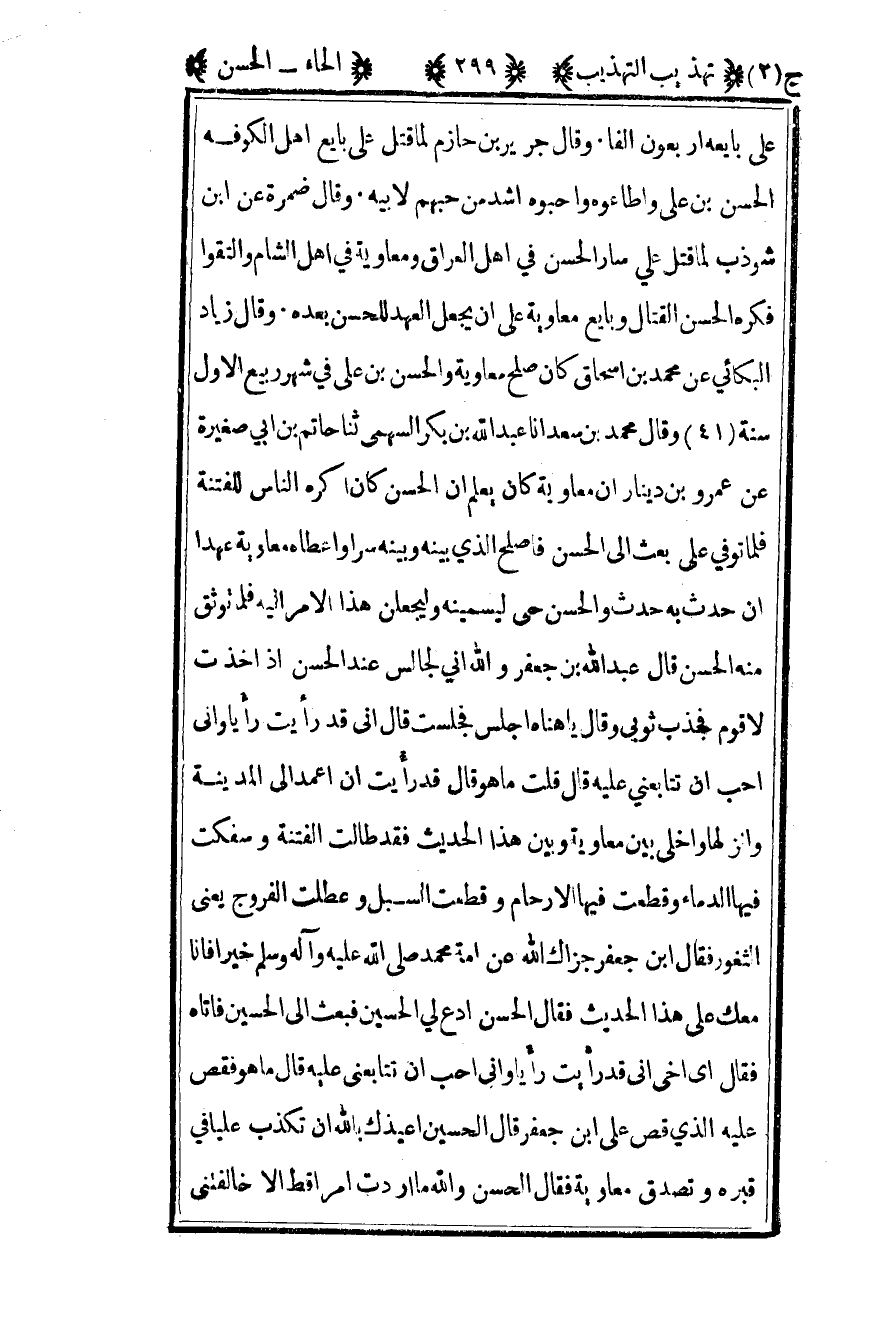 ج (٢) تهذيب التهذيب ٢٩٩ الحاء ــ الحسن
على بايعه اربعون الفا ٠ وقال جرير بن حازم لما قتل على بايع اهل الكوفه
الحسن بن على واطاعوه واحبوه اشد من حبهم لابيه ٠ وقال ضمرة عن ابن
شوذب لما قتل علي سار الحسن في اهل العراق ومعاوية في اهل الشام والتقوا
فكره الحسن القتال وبايع معاوية على ان يجعل العهد للحسن بعده ٠ وقال زياد
البكائي عن محمد بن اسحاق كان صلح معاوية والحسن بن على في شهر ربيع الاول
سنة (٤١) وقال محمد بن سعد انا عبد الله بن بكر السهمى ثنا حاتم بن ابي صغيرة
عن عمرو بن دينار ان معاوية كان يعلم ان الحسن كان اكره الناس للفتنة
فلما توفي على بعث الى الحسن فاصلح الذي بينه وبينه سرا واعطاه معاوية عهدا
ان حدث به حدث والحسن حى ليسمينه وليجعلن هذا الامر اليه فلما توثق
منه الحسن قال عبد الله بن جعفر والله اني لجالس عند الحسن اذ اخذت
لاقوم فجذب ثوبي وقال ياهناه اجلس فجلست قال انى قد رأيت رأيا وانى
احب ان تتابعني عليه قال قلت ما هو قال قد رأيت ان اعمد الى المدينة
وانزلها واخلى بين معاوية وبين هذا الحديث فقد طالت الفتنة و سفكت
فيها الدماء وقطعت فيها الارحام و قطعت السبل و عطلت الفروج يعنى
الثغور فقال ابن جعفر جزاك الله عن امة محمد صلى الله عليه وآله وسلم خيرا فانا
معك على هذا الحديث فقال الحسن ادع لي الحسين فبعث الى الحسين فاتاه
فقال اى اخى انى قد رأيت رأيا وانى احب ان تتابعنى عليه قال ما هو فقص
عليه الذي قص على ابن جعفر قال الحسين اعيذك بالله ان تكذب عليا في
قبره و تصدق معاوية فقال الحسن والله ما اردت امرا قط الا خالفتنى